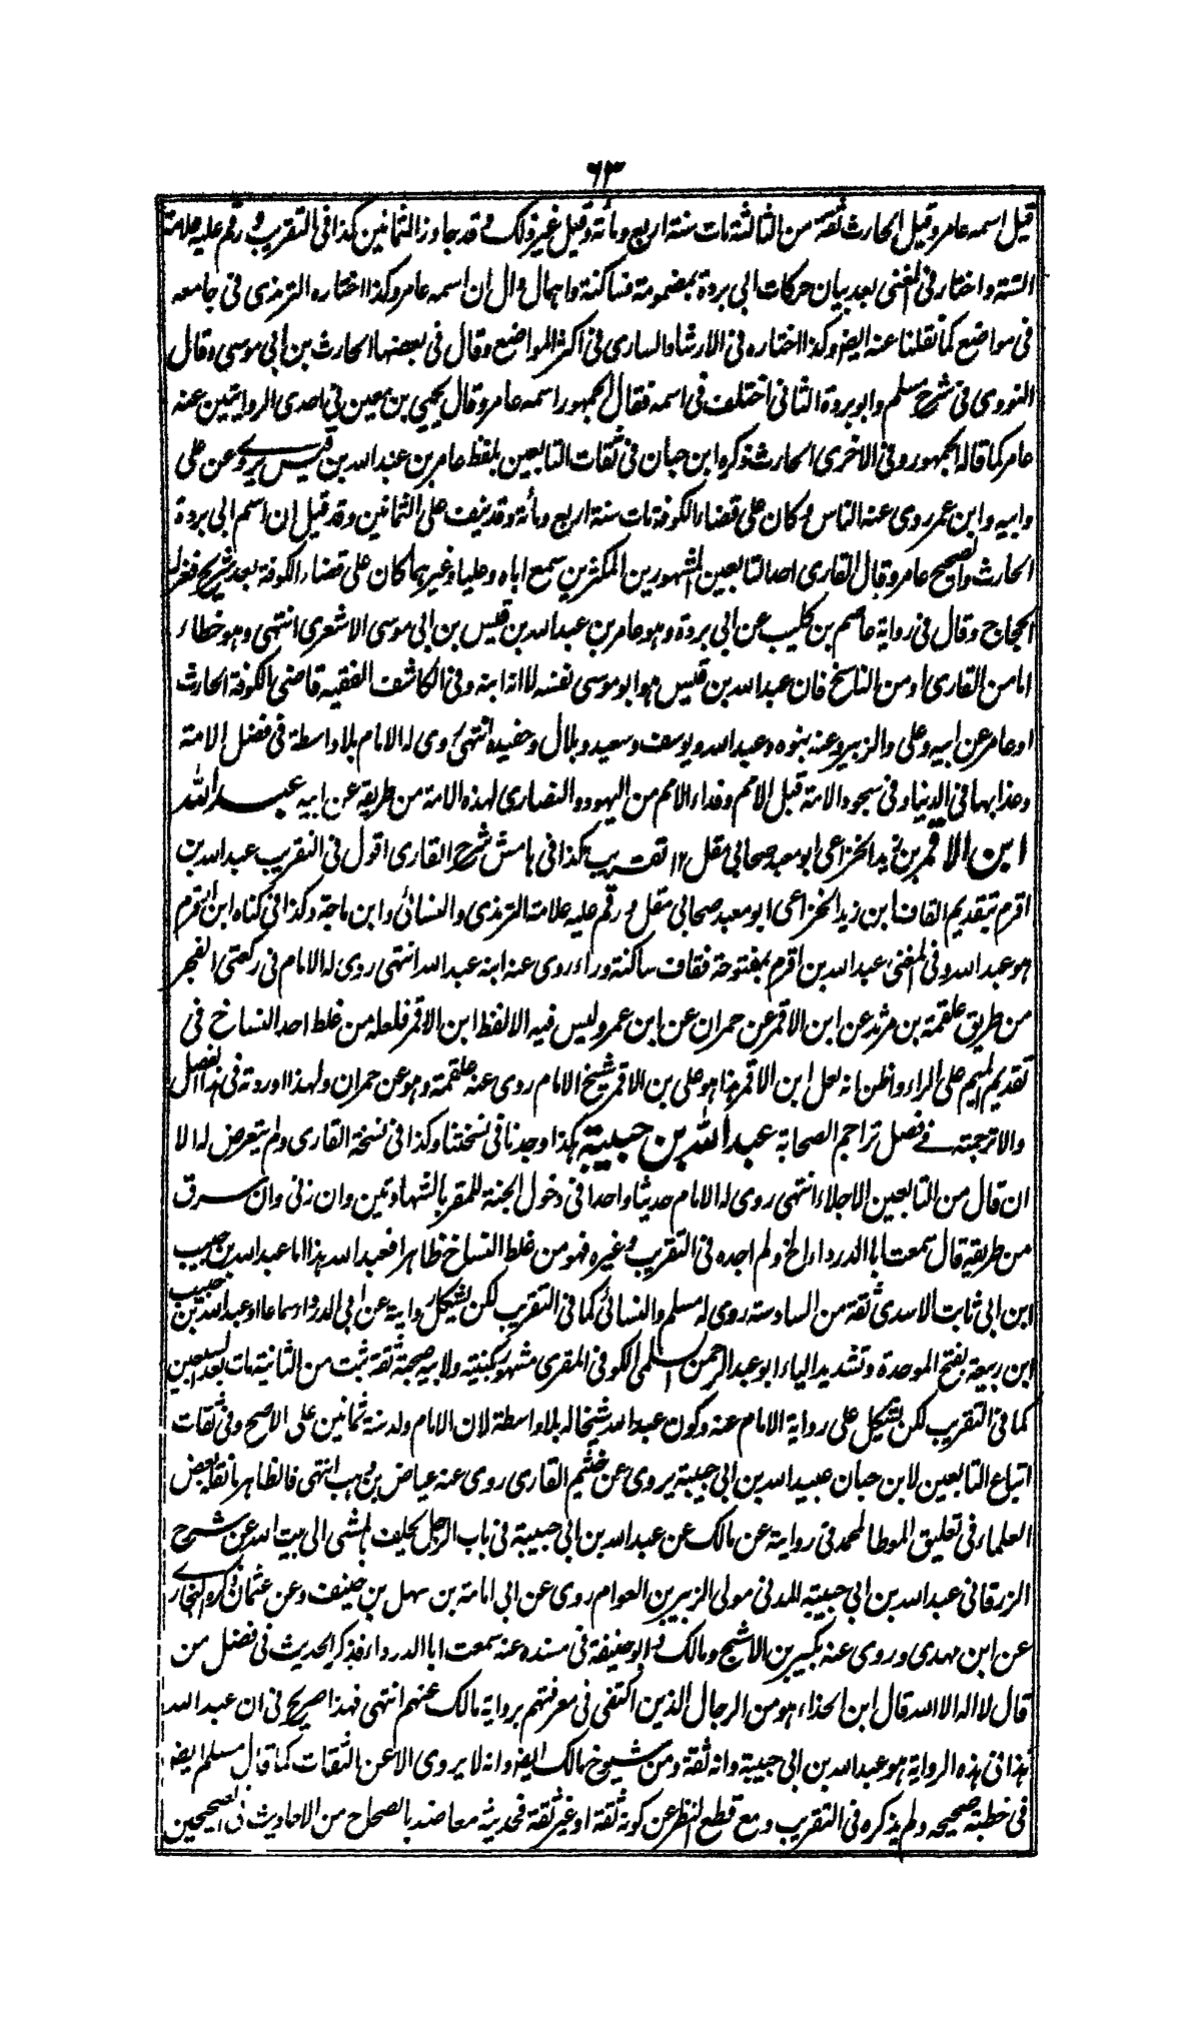 ٦٣
قيل اسمه عامر وقيل الحارث ثقة من الثالثة مات سنة اربع ومائة وقيل غير ذلك وقد جاوز الثمانين كذا فى التقريب ورقم عليه علامة
الستة واختار فى المغنى بعد بيان حركات ابى بردة بمضمومة فساكنة واهمال دال ان اسمه عامر وكذا اختاره الترمذى فى جامعه
فى مواضع كما نقلنا عنه ايضا وكذا اختاره فى الارشاد السارى فى اكثر المواضع وقال فى بعضها الحارث بن ابى موسى وقال
النووى فى شرح مسلم وابو بردة الثانى اختلف فى اسمه فقال الجمهور اسمه عامر وقال يحيى بن معين فى احدى الروايتين عنه
عامر كما قاله الجمهور وفى الاخرى الحارث ذكره ابن حبان فى ثقات التابعين بلفظ عامر بن عبد الله بن قيس يروى عن على
وابيه وابن عمر روى عنه الناس وكان على قضاء الكوفة مات سنة اربع ومائة وقد نيف على الثمانين وقد قيل ان اسم ابى بردة
الحارث والصحيح عامر وقال القارى احد التابعين المشهورين المكثرين سمع اباه وعليا وغيرهما كان على قضاء الكوفة بعد شريح فعزله
الحجاج وقال فى رواية عاصم بن كليب عن ابى بردة وهو عامر بن عبد الله بن قيس بن ابى موسى الاشعرى انتهى وهو خطاء
اما من القارى او من الناسخ فان عبد الله بن قيس هو ابو موسى نفسه لا انه ابنه وفى الكاشف الفقيه قاضى الكوفة الحارث
او عامر عن ابيه وعلى والزبير وعنه بنوه وعبد الله ويوسف وسعيد وبلال وحفيده انتهى روى له الامام بلا واسطة فى فضل الامة
وعذابها فى الدنيا وفى سجود الامة قبل الامم وفداء الامم من اليهود والنصارى لهذه الامة من طريقه عن ابيه عبد الله
ابن الاقمر بن زيد الخزاعى ابو معبد صحابى مقل ١٢ تقريب كذا فى هامش شرح القارى اقول فى التقريب عبد الله بن
اقرم بتقديم القاف ابن زيد الخزاعى ابو معبد صحابى مقل ورقم عليه علامة الترمذى والنسائى وابن ماجة وكذا فى كناه ابن اقرم
هو عبد الله وفى المغنى عبد الله بن اقرم بمفتوحة فقاف ساكنة وراء روى عنه ابنه عبد الله انتهى روى له الامام فى ركعتى الفجر
من طريق علقمة بن مرثد عن ابن الاقمر عن حمران عن ابن عمر وليس فيه الا لفظ ابن الاقمر فلعله من غلط احد النساخ فى
تقديم الميم على الراء واظن انه لعل ابن الاقمر هذا هو على بن الاقمر شيخ الامام روى عنه علقمة وهو عن حمران ولهذا اوردته فى هذا الفصل
والا ترجمته فى فصل تراجم الصحابة عبد الله بن حبيبة هكذا وجدنا فى نسختنا وكذا فى نسخة القارى ولم يتعرض له الا
ان قال من التابعين الاجلاء انتهى روى له الامام حديثا واحدا فى دخول الجنة للمقر بالشهادتين وان زنى وان سرق
من طريقه قال سمعت ابا الدرداء الخ ولم اجده فى التقريب وغيره فهو من غلط النساخ ظاهرا فعبد الله هذا اما عبد الله بن حبيب
ابن ابى ثابت الاسدى ثقة من السادسة روى له مسلم والنسائى كما فى التقريب لكن يشكل روايته عن ابى الدرداء سماعا او عبد الله بن حبيب
ابن ربيعة بفتح الموحدة وتشديد الياء ابو عبد الرحمن السلمى الكوفى المقرى مشهور بكنيته ولابيه صحبة ثقة ثبت من الثانية مات بعد السبعين
كما فى التقريب لكن يشكل على رواية الامام عنه وكون عبد الله شيخا له بلا واسطة لان الامام ولد سنة ثمانين على الاصح وفى ثقات
اتباع التابعين لابن حبان عبيد الله بن ابى حبيبة يروى عن خثيم القارى روى عنه عياض بن وهب انتهى فالظاهر ما نقله بعض
العلماء فى تعليق الموطا لمحمد فى رواية عن مالك عن عبد الله بن ابى حبيبة فى باب الرجل يحلف بالمشى الى بيت الله عن شرح
الزرقانى عبد الله بن ابى حبيبة المدنى مولى الزبير بن العوام روى عن ابى امامة بن سهل بن حنيف وعن عثمان ذكره البخارى
عن ابن مهدى وروى عنه بكير بن الاشج ومالك وابو حنيفة فى مسنده عنه سمعت ابا الدرداء فذكر الحديث فى فضل من
قال لا اله الا الله قال ابن الحذاء هو من الرجال الذين اكتفى فى معرفتهم برواية مالك عنهم انتهى فهذا صريح فى ان عبد الله
هذا فى هذه الرواية هو عبد الله بن ابى حبيبة وانه ثقة ومن شيوخ مالك ايضا وانه لا يروى الا عن الثقات كما قال مسلم ايضا
فى خطبة صحيحه ولم يذكره فى التقريب ومع قطع النظر عن كونه ثقة او غير ثقة فحديثه معاضد بالصحاح من الاحاديث فى الصحيحين